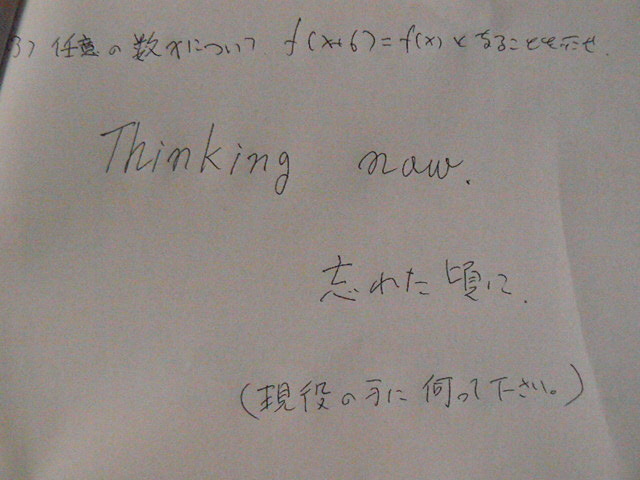 3) 任意の数xについて f(x+6)=f(x)となることを示せ.
Thinking now.
忘れた頃に.
(現役の方に伺って下さい。)